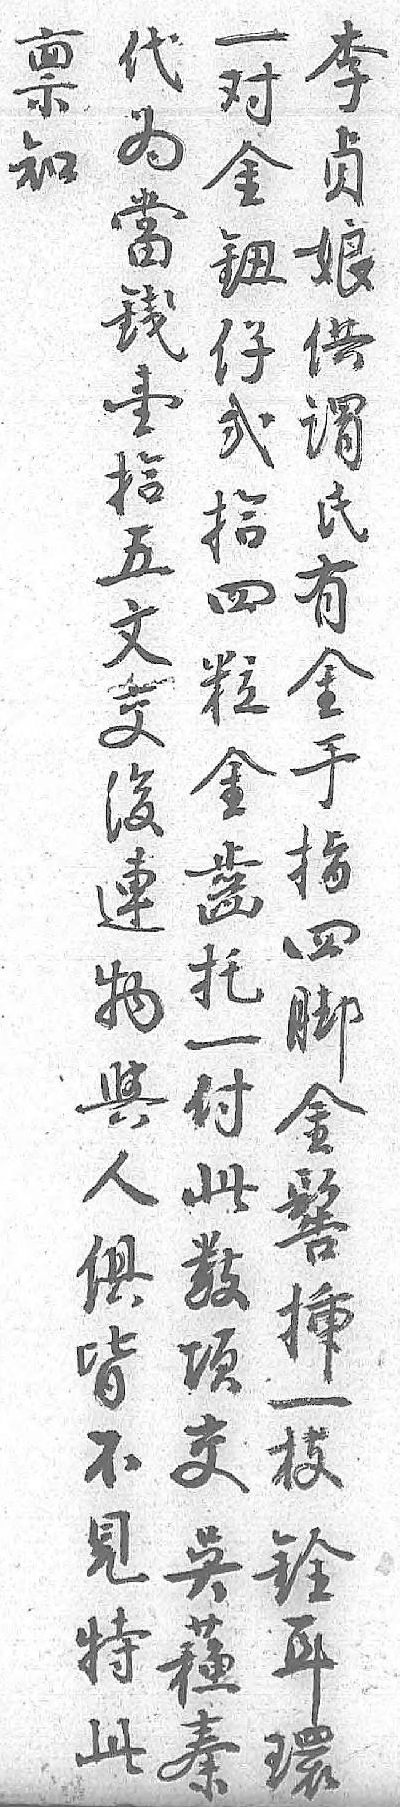 李貞娘供謂氏有金手指四脚金髻揷一枝銓耳環
一对金鈕仔弍拾四粒金齒托一付此数項交吳蘓秦
代为當錢壹拾五文交後連物與人俱皆不見特此
禀知